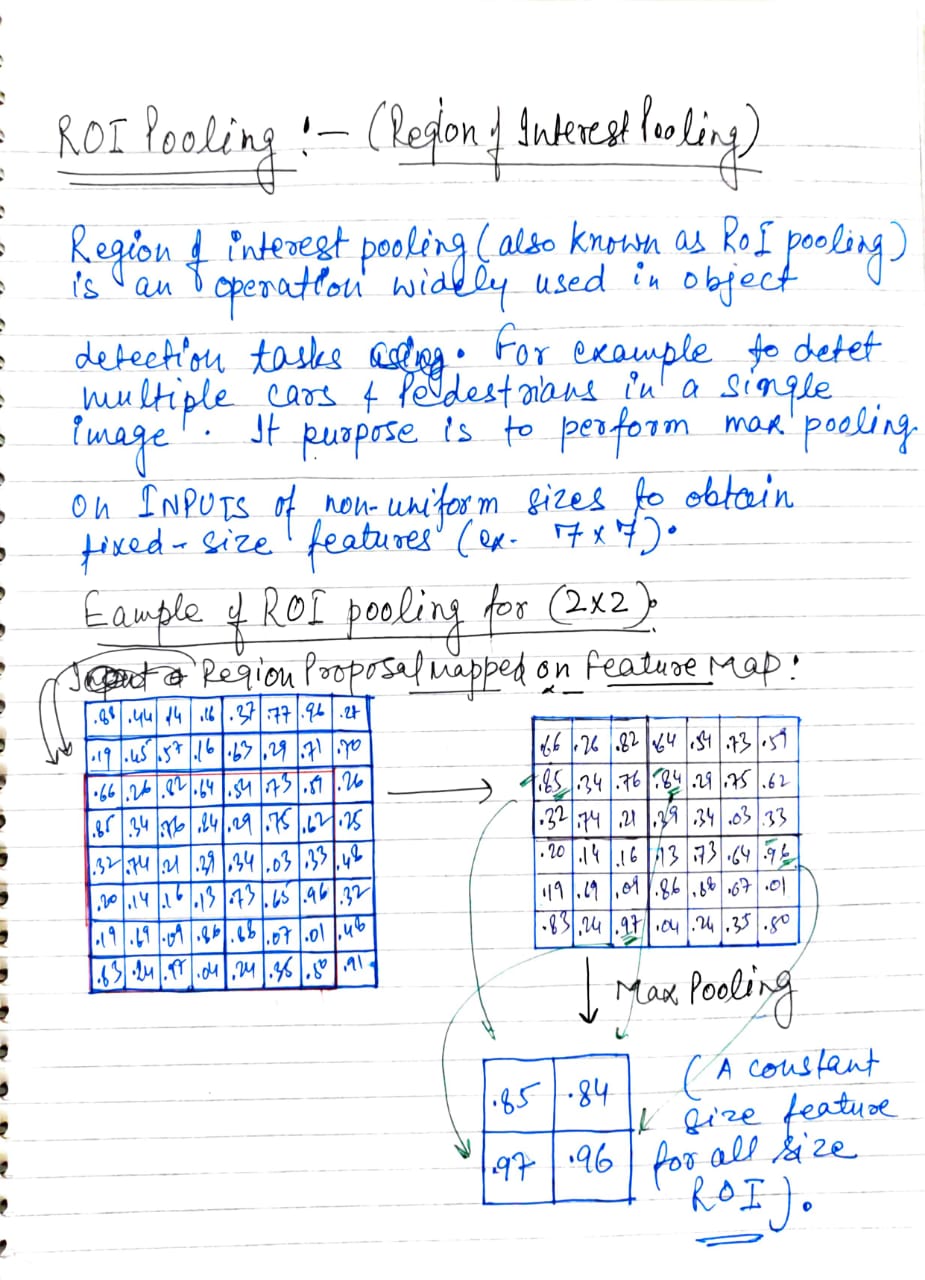 ROI Pooling :- (Region of Interest Pooling)
Region of interest pooling (also known as RoI pooling)
is an operation widely used in object
detection tasks. For example to detet
multiple cars & Pedestrians in a single
image. It purpose is to perform max pooling
on INPUTS of non-uniform sizes to obtain
fixed-size features (ex. 7x7).
Eample of ROI pooling for (2x2).
Region Proposal Mapped on Feature Map:
.88 .44 .14 .16 .37 .77 .96 .27
.19 .45 .57 .16 .63 .29 .71 .70
.66 .26 .82 .64 .54 .73 .59 .26
.85 .34 .76 .84 .29 .75 .62 .25
.32 .74 .21 .39 .34 .03 .33 .48
.20 .14 .16 .13 .73 .65 .96 .32
.19 .69 .09 .86 .88 .07 .01 .48
.83 .24 .97 .04 .24 .35 .50 .91
.66 .26 .82 .64 .54 .73 .59
.85 .34 .76 .84 .29 .75 .62
.32 .74 .21 .39 .34 .03 .33
.20 .14 .16 .13 .73 .64 .96
.19 .69 .09 .86 .88 .07 .01
.83 .24 .97 .04 .24 .35 .50
Max Pooling
.85 .84
.97 .96
(A constant
size feature
for all size
ROI).